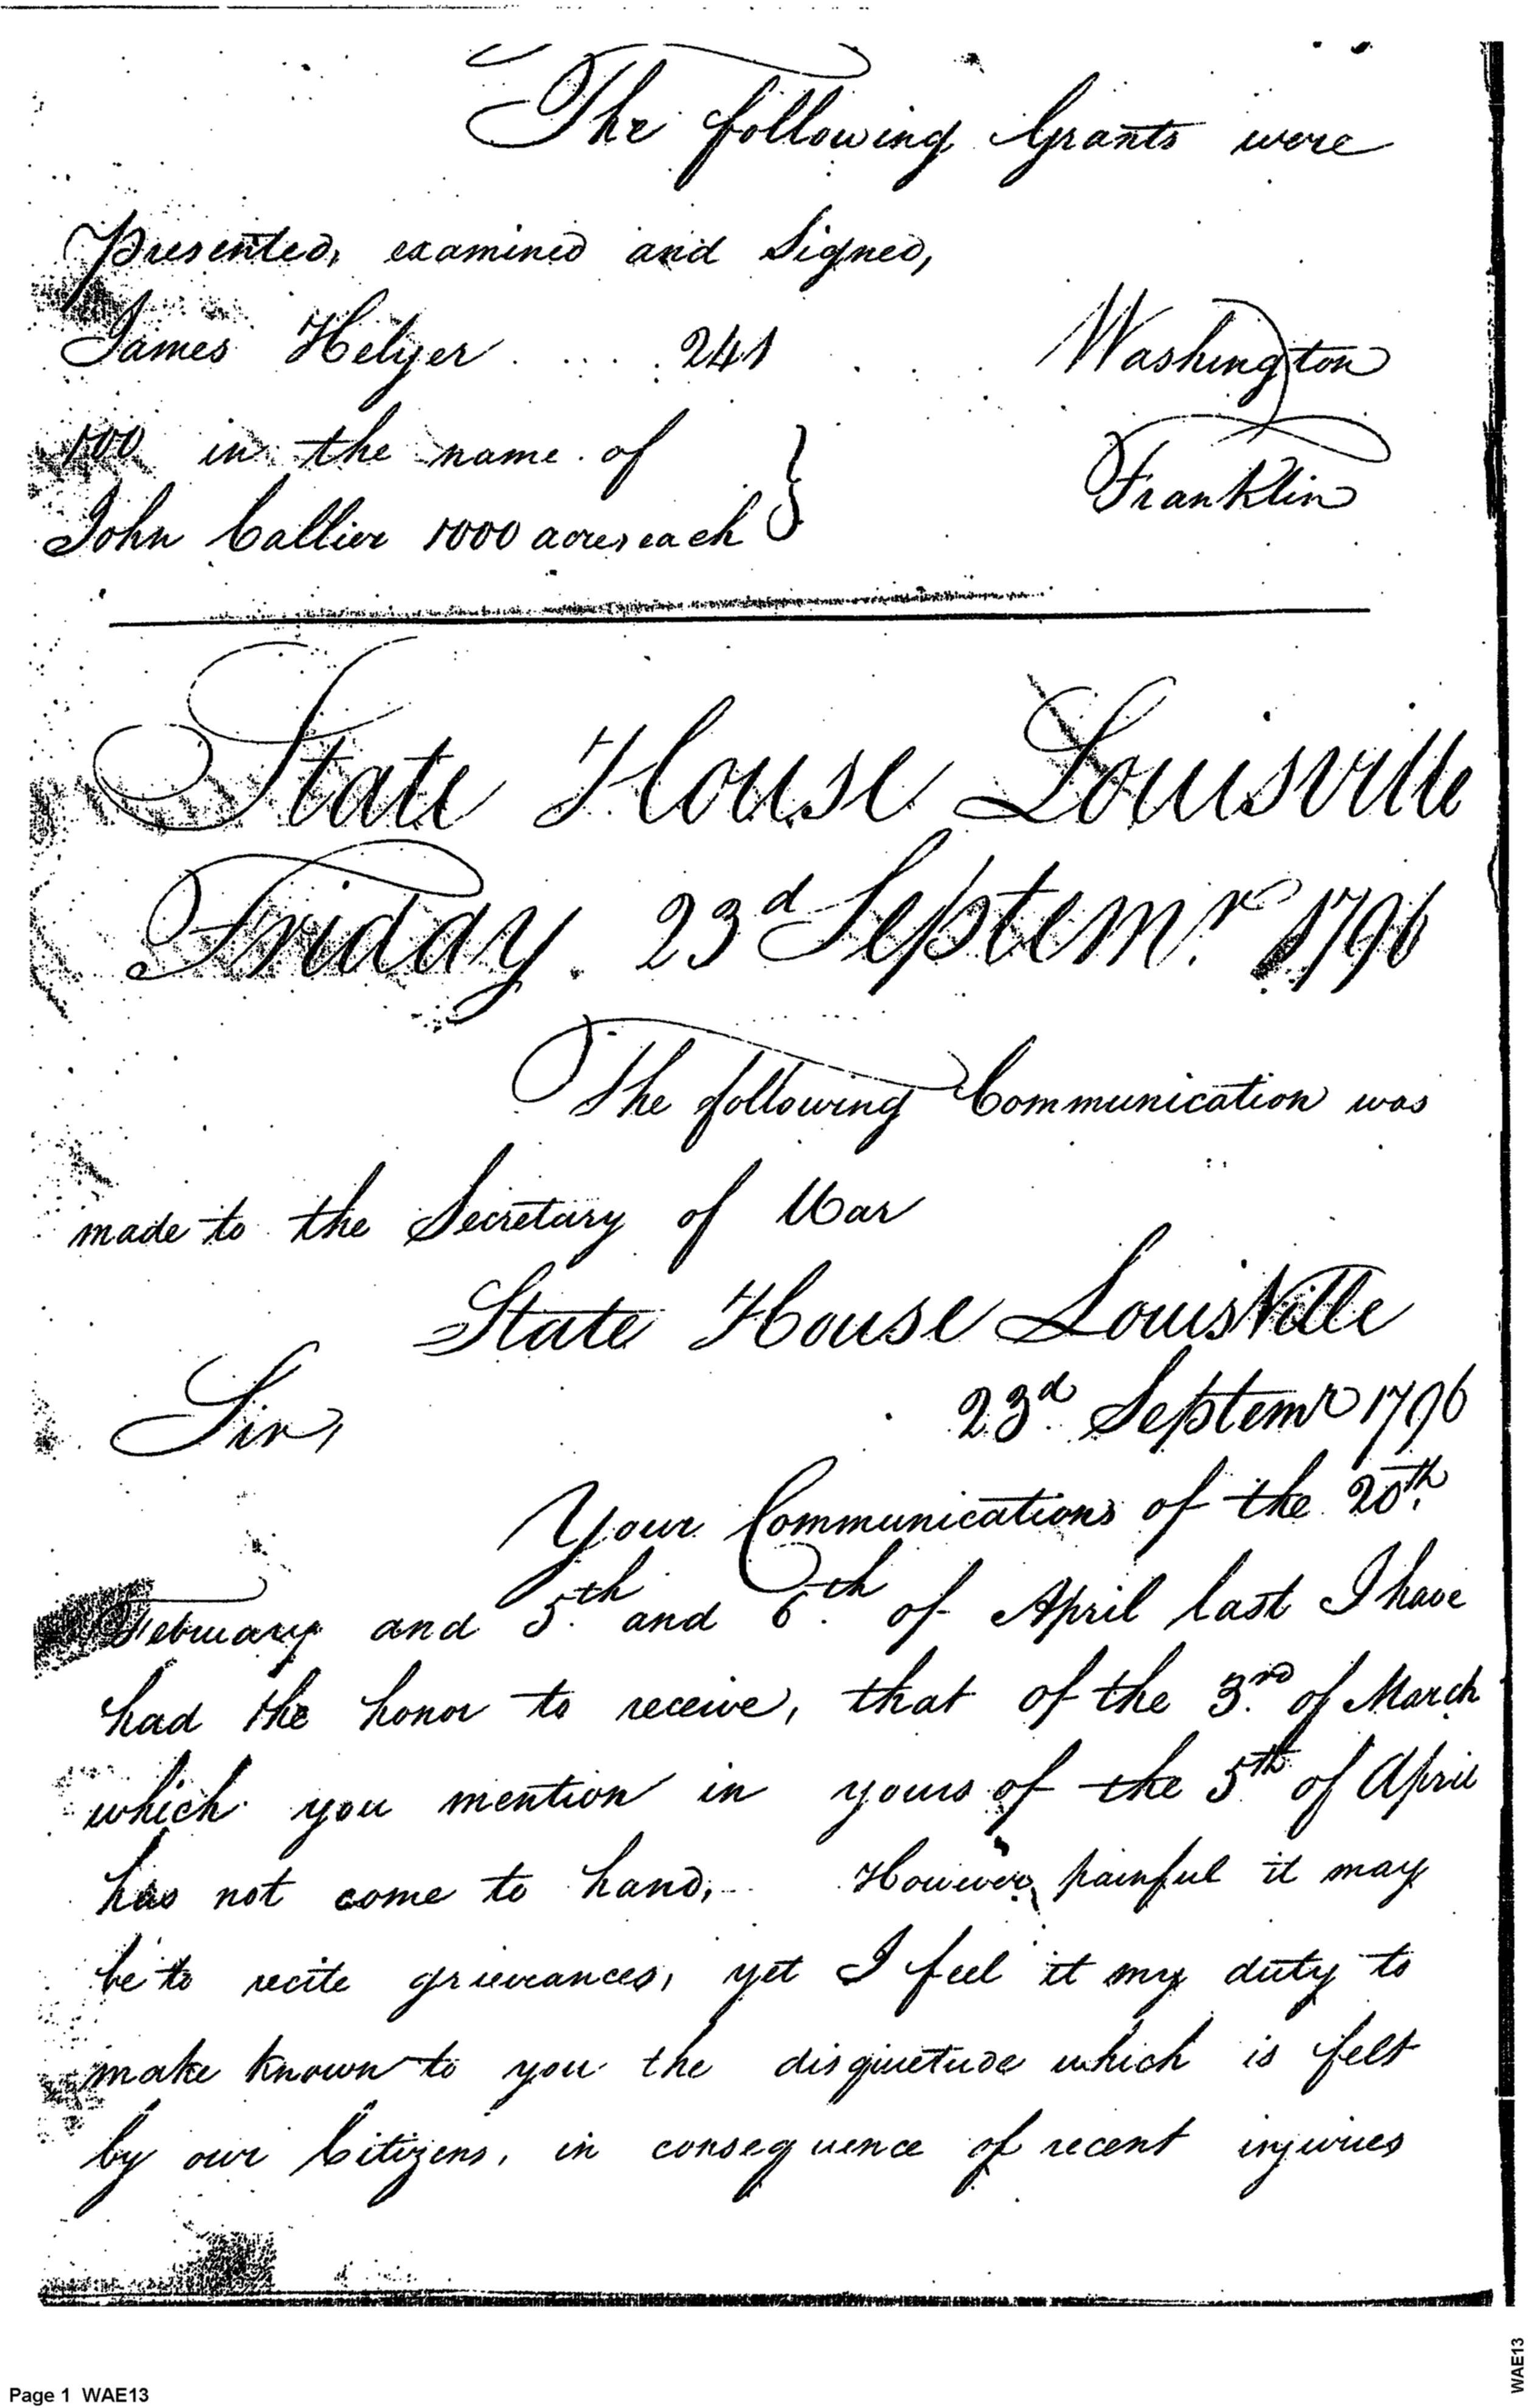 The following Grants were
presented, examined and Signed,
James Helyer . . . . . 241 . . . Washington
100 in the name of
John Collier 1000 acres each } Franklin
State House Louisville
Friday. 23d Septemr. 1796
The following Communication was
made to the Secretary of War
State House Louisville
23d. Septemr 1796
Sir,
Your Communications of the 20th.
February and 5th. and 6th. of April last I have
had the honor to receive, that of the 3rd. of March
which you mention in yours of the 5th. of April
has not come to hand, However painful it may
be to recite grievances, yet I feel it my duty to
make known to you the disquietude which is felt
by our Citizens, in consequence of recent injuries
Page 1 WAE13
WAE13